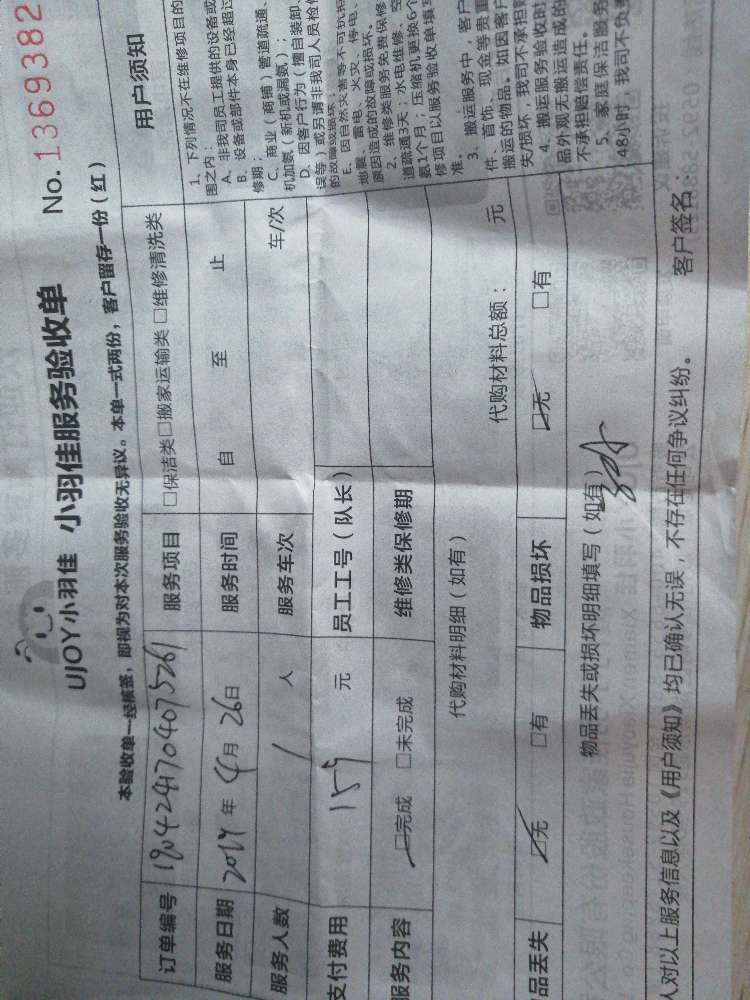 UJOY小羽佳 小羽佳服务验收单 No. 1369382
本验收单一经核签，即视为对本次服务验收无异议。本单一式两份，客户留存一份（红）
订单编号 1904241704075261 服务项目 □保洁类□搬家运输类 □维修清洗类
服务日期 2019 年 4 月 26 日 服务时间 自 至 止
服务人数 1 人 服务车次 车/次
支付费用 159 元 员工工号（队长）
服务内容 ☑完成 □未完成 维修类保修期
代购材料明细（如有） 代购材料总额： 元
品丢失 ☑无 □有 物品损坏 ☑无 □有
物品丢失或损坏明细填写（如有）
人对以上服务信息以及《用户须知》均已确认无误，不存在任何争议纠纷。 客户签名：
用户须知
1、下列情况不在维修项目的
围之内：
A、非我司员工提供的设备或
B、设备或部件本身已经超过
修期；
C、商业（商铺）管道疏通、
机加氨（新机或漏氨）；
D、因客户行为（擅自装卸、
误等）或另请非我司人员检修
的故障或损坏；
E、因自然灾害等不可抗拒
地震、雷电、火灾、停电、
原因造成的故障或损坏。
2、维修类服务免费保修
道疏通3天；水电维修、空
氨1个月；压缩机更换6个
修项目以服务验收单填写
准。
3、搬运服务中，客户
件、首饰、现金等贵重
搬运的物品。如因客户
失/损坏，我司不承担赔
4、搬运服务验收时
品外观无搬运造成的
不承担赔偿责任。
5、家庭保洁服务
48小时，我司不负责